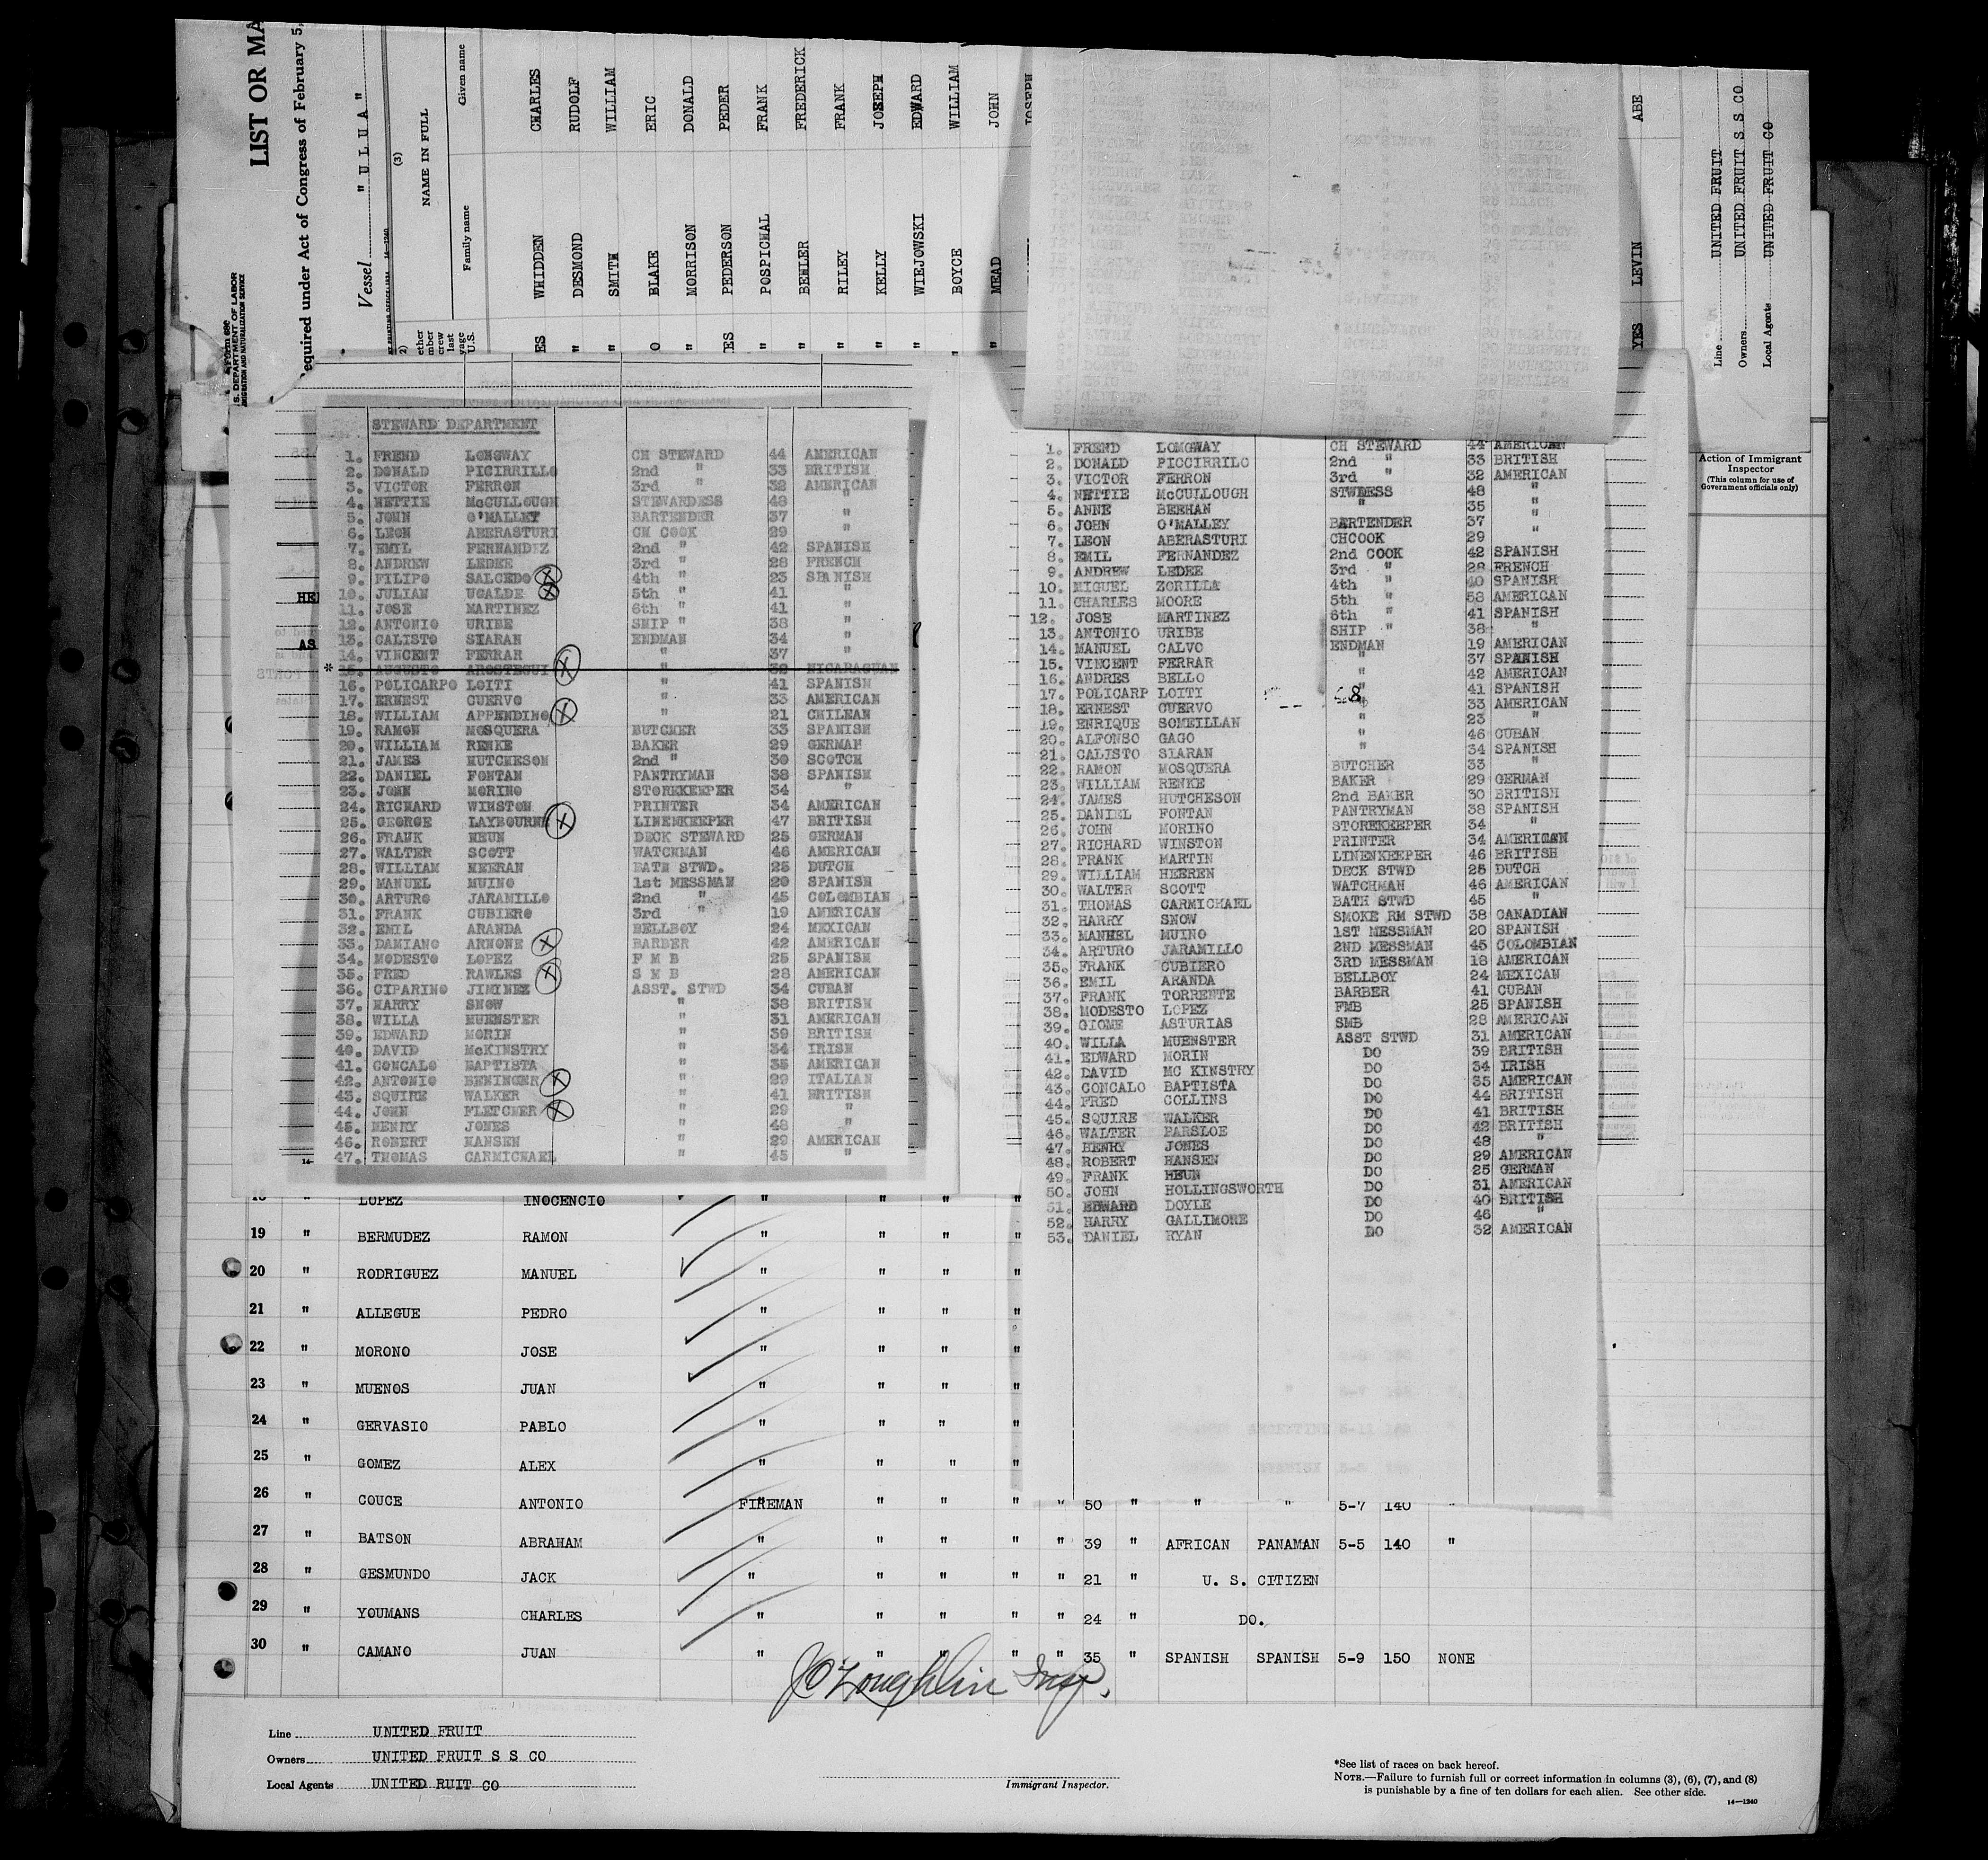 LIST OR MA
equired under Act of Congress of February 5,
Vessel "ULUA"
S. DEPARTMENT OF LABOR
(3)
NAME IN FULL
Family name Given name
WHIDDEN CHARLES
DESMOND RUDOLF
SMITH WILLIAM
BLAKE ERIC
MORRISON DONALD
PEDERSON PEDER
POSPICHAL FRANK
BEHLER FREDERICK
RILEY FRANK
KELLY JOSEPH
WIEJOWSKI EDWARD
BOYCE WILLIAM
MEAD JOHN
JOSEPH
YES LEVIN ABE
Line UNITED FRUIT
Owners UNITED FRUIT S S CO
Local Agents UNITED FRUIT CO
Action of Immigrant
Inspector
(This column for use of
Government officials only)
STEWARD DEPARTMENT
1. FREND LONGWAY CH STEWARD 44 AMERICAN
2. DONALD PICIRRILLO 2nd " 33 BRITISH
3. VICTOR FERRON 3rd " 32 AMERICAN
4. NETTIE McCULLOUGH STEWARDESS 48 "
5. JOHN O'MALLEY BARTENDER 37 "
6. LEON ABERASTURI CH COOK 29 "
7. EMIL FERNANDEZ 2nd " 42 SPANISH
8. ANDREW LEDEE 3rd " 28 FRENCH
9. FILIPO SALCEDO X 4th " 23 SPANISH
10. JULIAN UGALDE X 5th " 41 "
11. JOSE MARTINEZ 6th " 41 "
12. ANTONIO URIBE SHIP " 38 "
13. CALISTO SIARAN ENDMAN 34 "
14. VINCENT FERRAR " 37 "
* 15. AUGUSTO AROSTEGUI X " 39 NICARAGUAN
16. POLICARPO LOITI " 41 SPANISH
17. ERNEST CUERVO " 33 AMERICAN
18. WILLIAM APPENDINO X " 21 CHILEAN
19. RAMON MOSQUERA BUTCHER 33 SPANISH
20. WILLIAM RENKE BAKER 29 GERMAN
21. JAMES HUTCHESON 2nd " 30 SCOTCH
22. DANIEL FONTAN PANTRYMAN 38 SPANISH
23. JOHN MORINO STOREKEEPER 34 "
24. RICHARD WINSTON PRINTER 34 AMERICAN
25. GEORGE LAYBOURNE X LINENKEEPER 47 BRITISH
26. FRANK HEUN DECK STEWARD 25 GERMAN
27. WALTER SCOTT WATCHMAN 46 AMERICAN
28. WILLIAM HEERAN BATH STWD. 25 DUTCH
29. MANUEL MUINO 1st MESSMAN 20 SPANISH
30. ARTURO JARAMILLO 2nd " 45 COLOMBIAN
31. FRANK CUBIERO 3rd " 19 AMERICAN
32. EMIL ARANDA BELLBOY 24 MEXICAN
33. DAMIANO ARNONE X BARBER 42 AMERICAN
34. MODESTO LOPEZ F M B 25 SPANISH
35. FRED RAWLES X S M B 28 AMERICAN
36. CIPARINO JIMINEZ ASST. STWD 34 CUBAN
37. HARRY SNOW " 38 BRITISH
38. WILLA MUENSTER " 31 AMERICAN
39. EDWARD MORIN " 39 BRITISH
40. DAVID McKINSTRY " 34 IRISH
41. GONCALO BAPTISTA " 35 AMERICAN
42. ANTONIO BENINGER X " 29 ITALIAN
43. SQUIRE WALKER " 41 BRITISH
44. JOHN FLETCHER X " 29 "
45. HENRY JONES " 48 "
46. ROBERT HANSEN " 29 AMERICAN
47. THOMAS CARMICHAEL " 45 "
1. FREND LONGWAY CH STEWARD 44 AMERICAN
2. DONALD PICCIRRILO 2nd " 33 BRITISH
3. VICTOR FERRON 3rd " 32 AMERICAN
4. NETTIE McCULLOUGH STWDESS 48 "
5. ANNE BEEHAN " 35 "
6. JOHN O'MALLEY BARTENDER 37 "
7. LEON ABERASTURI CHCOOK 29
8. EMIL FERNANDEZ 2nd COOK 42 SPANISH
9. ANDREW LEDEE 3rd " 28 FRENCH
10. MIGUEL ZORILLA 4th " 40 SPANISH
11. CHARLES MOORE 5th " 58 AMERICAN
12. JOSE MARTINEZ 6th " 41 SPANISH
13. ANTONIO URIBE SHIP " 38 "
14. MANUEL CALVO ENDMAN 19 AMERICAN
15. VINCENT FERRAR " 37 SPANISH
16. ANDRES BELLO " 42 AMERICAN
17. POLICARP LOITI " 41 SPANISH
18. ERNEST CUERVO " 33 AMERICAN
19. ENRIQUE SOMEILLAN " 23 "
20. ALFONSO GAGO " 46 CUBAN
21. CALISTO SIARAN " 34 SPANISH
22. RAMON MOSQUERA BUTCHER 33 "
23. WILLIAM RENKE BAKER 29 GERMAN
24. JAMES HUTCHESON 2nd BAKER 30 BRITISH
25. DANIEL FONTAN PANTRYMAN 38 SPANISH
26. JOHN MORINO STOREKEEPER 34 "
27. RICHARD WINSTON PRINTER 34 AMERICAN
28. FRANK MARTIN LINENKEEPER 46 BRITISH
29. WILLIAM HEEREN DECK STWD 25 DUTCH
30. WALTER SCOTT WATCHMAN 46 AMERICAN
31. THOMAS CARMICHAEL BATH STWD 45 "
32. HARRY SNOW SMOKE RM STWD 38 CANADIAN
33. MANHEL MUINO 1ST MESSMAN 20 SPANISH
34. ARTURO JARAMILLO 2ND MESSMAN 45 COLOMBIAN
35. FRANK CUBIERO 3RD MESSMAN 18 AMERICAN
36. EMIL ARANDA BELLBOY 24 MEXICAN
37. FRANK TORRENTE BARBER 41 CUBAN
38. MODESTO LOPEZ FMB 25 SPANISH
39. GIOME ASTURIAS SMB 28 AMERICAN
40. WILLA MUENSTER ASST STWD 31 AMERICAN
41. EDWARD MORIN DO 39 BRITISH
42. DAVID MC KINSTRY DO 34 IRISH
43. GONCALO BAPTISTA DO 35 AMERICAN
44. FRED COLLINS DO 44 BRITISH
45. SQUIRE WALKER DO 41 BRITISH
46. WALTER PARSLOE DO 42 BRITISH
47. HENRY JONES DO 48 "
48. ROBERT HANSEN DO 29 AMERICAN
49. FRANK HEUN DO 25 GERMAN
50. JOHN HOLLINGSWORTH DO 31 AMERICAN
51. EDWARD DOYLE DO 40 BRITISH
52. HARRY GALLIMORE DO 46 "
53. DANIEL RYAN DO 32 AMERICAN
" LOPEZ INOCENCIO " " " "
19 " BERMUDEZ RAMON " " " "
20 " RODRIGUEZ MANUEL " " " "
21 " ALLEGUE PEDRO " " " "
22 " MORONO JOSE " " " "
23 " MUENOS JUAN " " " "
24 " GERVASIO PABLO " " " "
25 " GOMEZ ALEX " " " "
26 " COUCE ANTONIO FIREMAN " " " " 50 " " " 5-7 140
27 " BATSON ABRAHAM " " " " " 39 " AFRICAN PANAMAN 5-5 140 "
28 " GESMUNDO JACK " " " " " 21 " U. S. CITIZEN
29 " YOUMANS CHARLES " " " " " 24 " DO.
30 " CAMANO JUAN " " " " " 35 " SPANISH SPANISH 5-9 150 NONE
J O'Loughlin Insp.
Line UNITED FRUIT
Owners UNITED FRUIT S S CO
Local Agents UNITED RUIT CO
Immigrant Inspector.
*See list of races on back hereof.
NOTE.—Failure to furnish full or correct information in columns (3), (6), (7), and (8)
is punishable by a fine of ten dollars for each alien. See other side.
14—1240